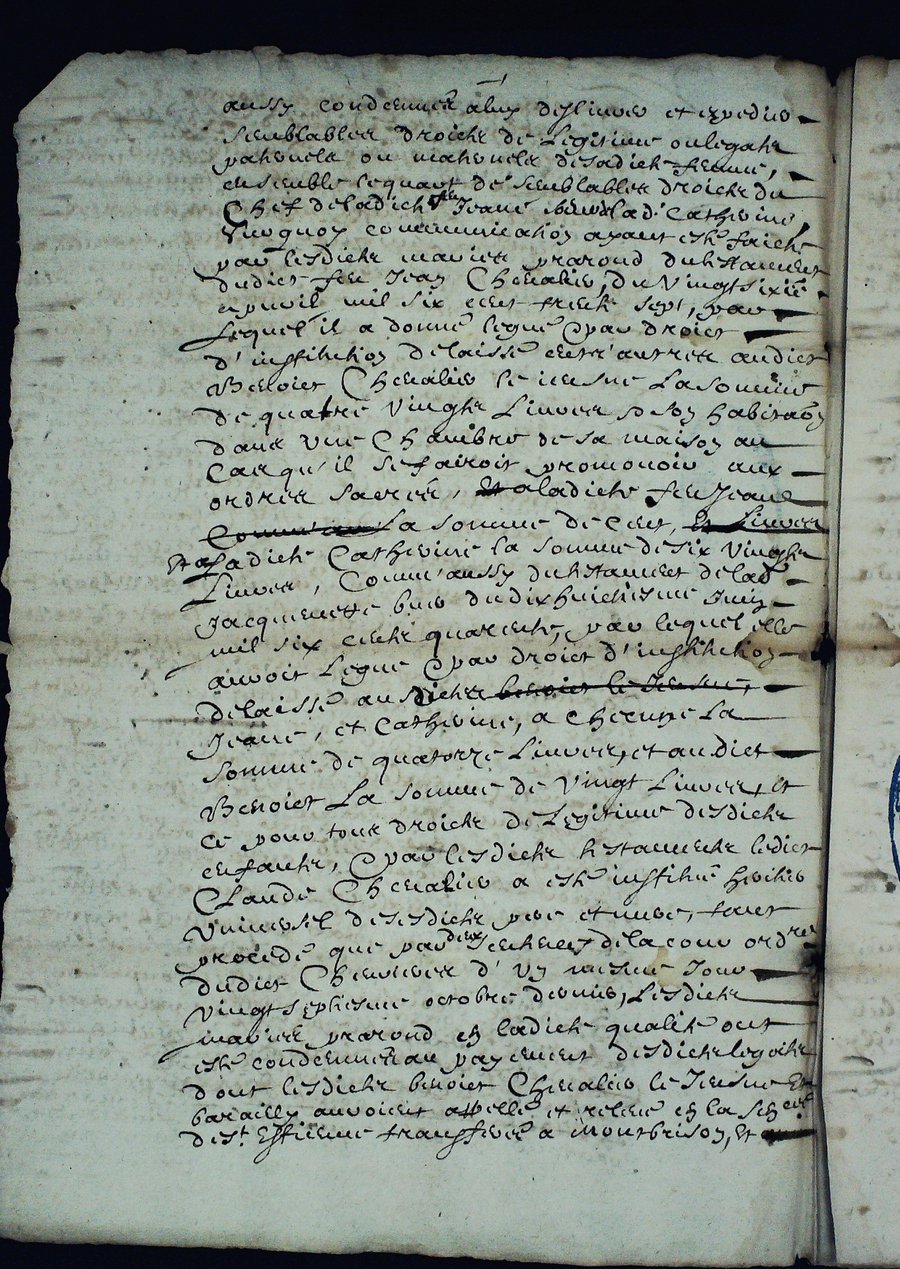 aussy condennés a luy deslivrer et expedier
semblables droicts de Legitime ou legats
paternels ou maternels de sadicte femme,
ensemble le quart de semblables droicts du
Chef de ladicte feu Jeane lad. Catherine,
Surquoy communication ayant esté faicte
par lesdicts mariés prarond du testament
dudict feu Jean Chevalier, du Vingt sixie
apvril mil six cent trente sept, par
Lequel il a donné legué & par droict
d'institution delaissé entr'autres audict
Benoict Chevalier le jeusne La somme
de quatre Vingts Livres & son habitaon
dans Une Chambre de sa maison au
Cas qu'il se fairoit promouvoir aux
ordres sacrés, Et a ladicte feu Jeane
La somme de Cent, Et Livres
Et a Ladicte Catherine la somme de six Vingts
Livres, Comm'aussy du testament de lad
Jacquemette du dixhuictiesme Juin
mil six cents quarente, par lequel elle
auroit Legué & par droict d'institution
delaissé ausdicts benoict le Jeusne,
Jeane, et Catherine, a Checune La
somme de quatorze Livres, et audict
Benoict La somme de Vingt Livres, Et
ce pour tous droicts de Legitime desdicts
enfants, & par lesdicts testaments ledict
Claude Chevalier a esté institué heritier
Universel de sesdicts pere et mere, tant
procedé que par deux sentences de la cour ordre
dudict d'Un mesme Jour
Vingt septiesme octobre dernier, Lesdicts
mariés prarond en ladicte qualité ont
esté condennés au payement desdicts legats
dont lesdicts benoict Chevalier le Jeusne Et
barailly auroient appellé et relevé en la Sencée
de St Estienne transferée a Montbrison, Et